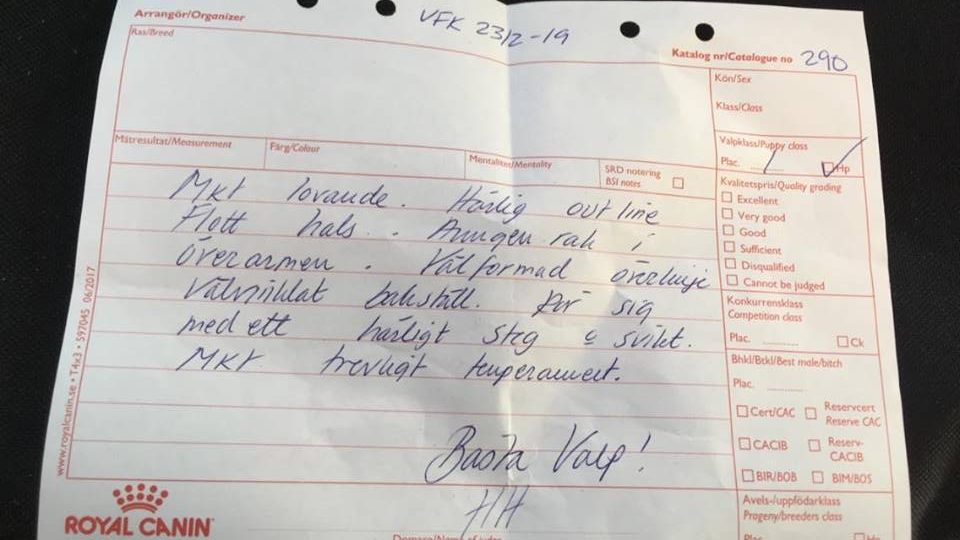 Arrangör/Organizer
VFK 23/2-19
Ras/Breed
Katalog nr/Catalogue no 290
Kön/Sex
Klass/Class
Mätresultat/Measurement
Färg/Colour
Mentalitet/Mentality
SRD notering
BSI notes
Valpklass/Puppy class
Plac. 1 Hp
Kvalitetspris/Quality grading
Excellent
Very good
Good
Sufficient
Disqualified
Cannot be judged
Mkt lovande. Härlig outline
Flott hals. Aningen rak i
överarmen. Välformad överlinje
Välvinklat bakställ. Rör sig
med ett härligt steg o svikt.
Mkt trevligt temperament.
Bästa Valp!
HH
Konkurrensklass
Competition class
Plac. Ck
Bhkl/Btkl/Best male/bitch
Plac.
Cert/CAC
Reservcert
Reserve CAC
CACIB
Reserv-
CACIB
BIR/BOB
BIM/BOS
Avels-/uppfödarklass
Progeny/breeders class
Plac Hp
www.royalcanin.se • T4x3 • 597045 06/2017
ROYAL CANIN